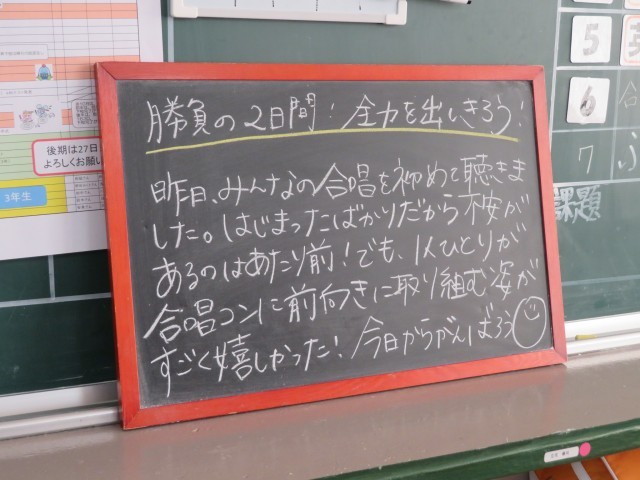 勝負の2日間！全力を出しきろう！
昨日、みんなの合唱を初めて聴きま
した。はじまったばかりだから不安が
あるのはあたり前！でも、1人ひとりが
合唱コンに前向きに取り組む姿が
すごく嬉しかった！今日からがんばろう
後期は27日
よろしくお願い
3年生
5
6
7
課題